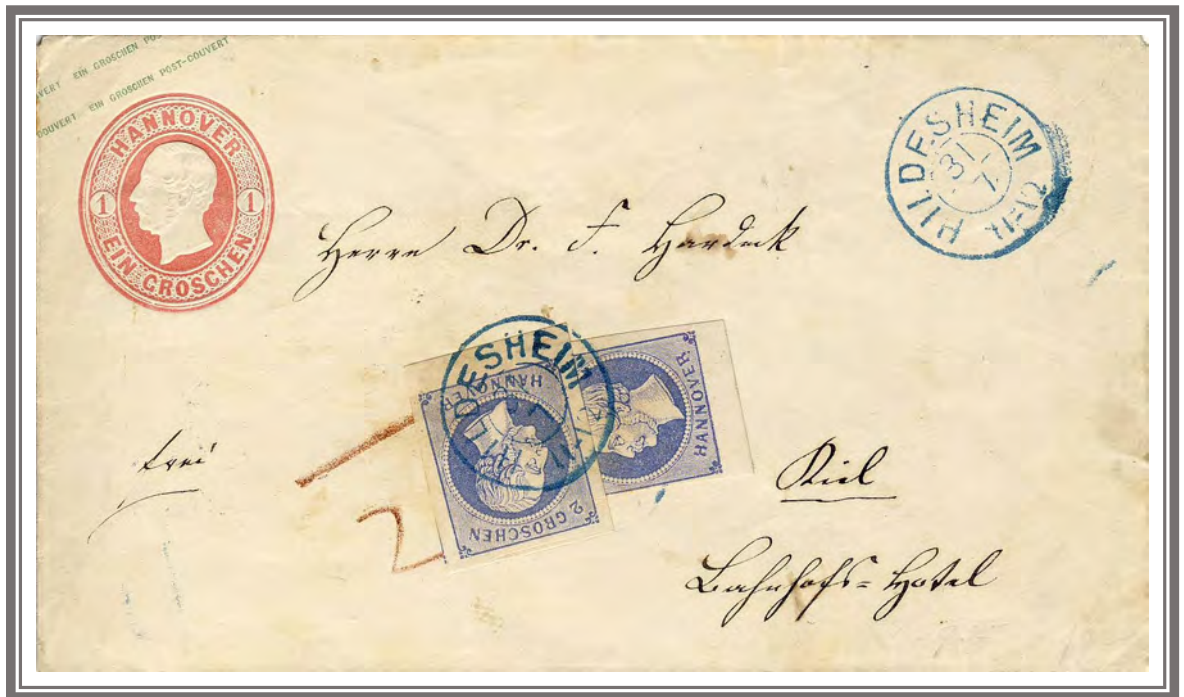 EIN GROSCHEN POST-
COUVERT EIN GROSCHEN POST-COUVERT
COUVERT
HANNOVER
1 1
EIN GROSCHEN
HILDESHEIM
31
7
11-12
Herrn Dr. F. Hardeck
HILDESHEIM
HANNOVER
2 GROSCHEN
HANNOVER
frei
2
Kiel
Bahnhofs=Hotel